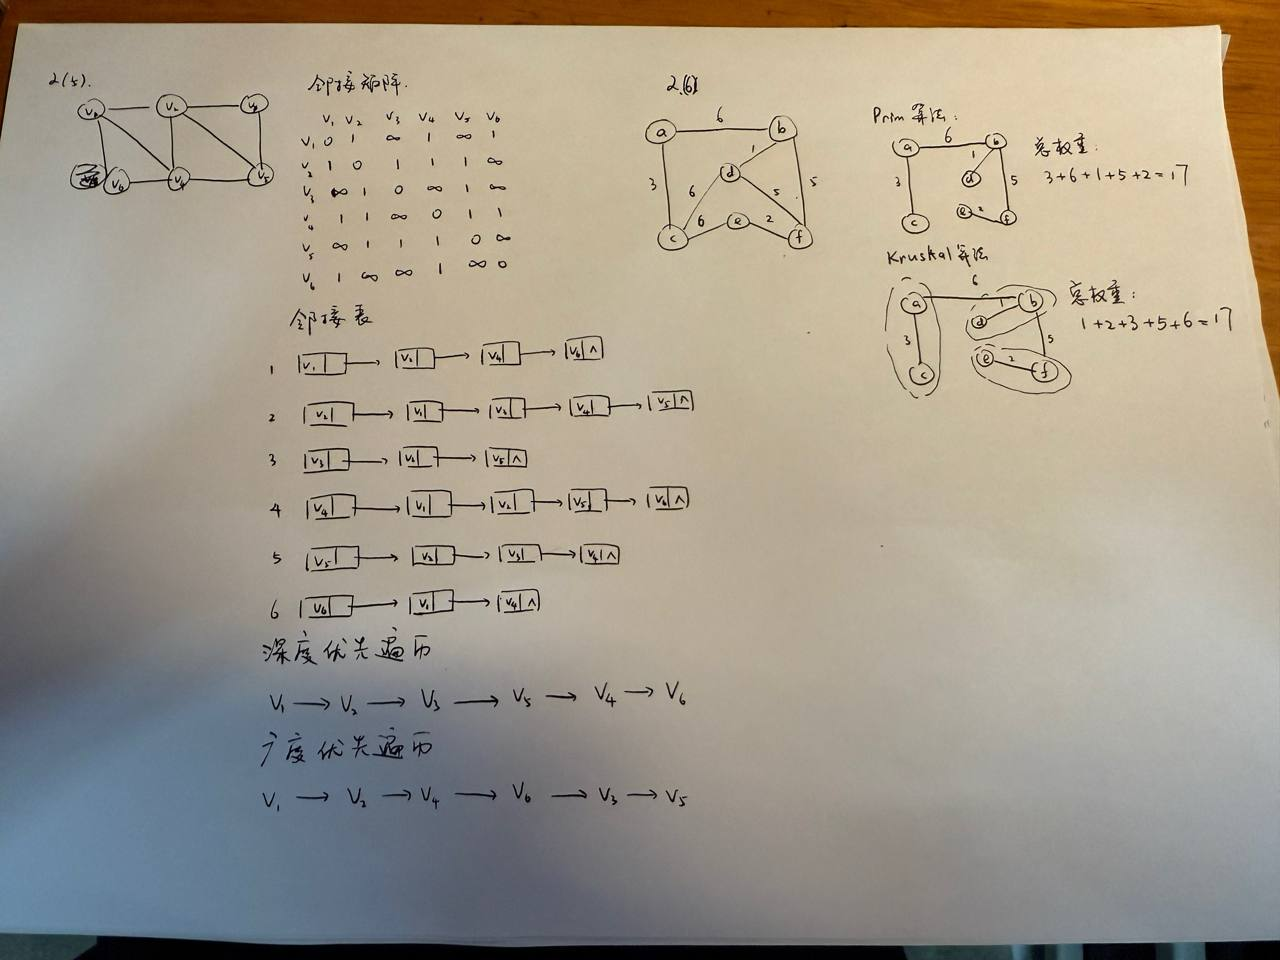 2(5).
V₁ V₂ V₃
V₆ V₄ V₅
邻接矩阵.
V₁ V₂ V₃ V₄ V₅ V₆
V₁ 0 1 ∞ 1 ∞ 1
V₂ 1 0 1 1 1 ∞
V₃ ∞ 1 0 ∞ 1 ∞
V₄ 1 1 ∞ 0 1 1
V₅ ∞ 1 1 1 0 ∞
V₆ 1 ∞ ∞ 1 ∞ 0
邻接表
1 V₁ → V₂ → V₄ → V₆ ∧
2 V₂ → V₁ → V₃ → V₄ → V₅ ∧
3 V₃ → V₂ → V₅ ∧
4 V₄ → V₁ → V₂ → V₅ → V₆ ∧
5 V₅ → V₂ → V₃ → V₄ ∧
6 V₆ → V₁ → V₄ ∧
深度优先遍历
V₁ → V₂ → V₃ → V₅ → V₄ → V₆
广度优先遍历
V₁ → V₂ → V₄ → V₆ → V₃ → V₅
2(6)
6
a b
1
d
3 6 5 5
6 e 2
c f
Prim 算法:
6
a b
1
3 d 5
e 2
c f
总权重:
3+6+1+5+2=17
Kruskal 算法
6
a 1 b
d
3 5
e 2
c f
总权重:
1+2+3+5+6=17